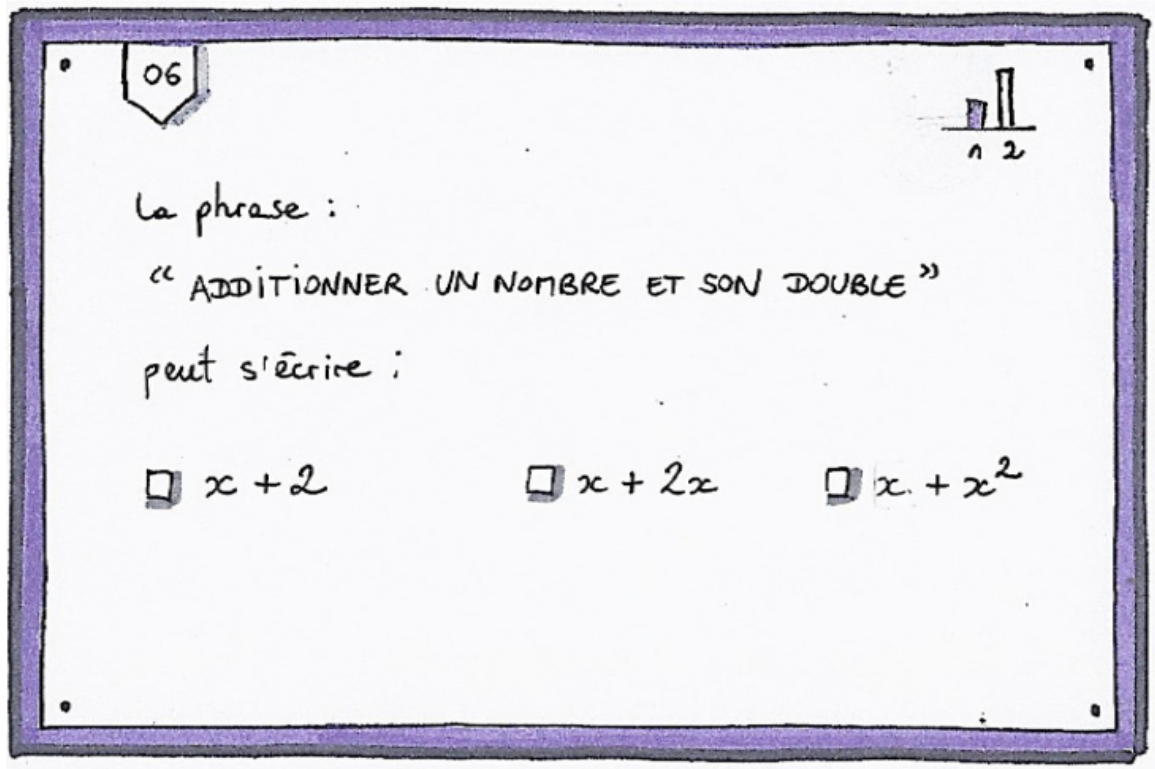 06
1 2
La phrase :
“ ADDITIONNER UN NOMBRE ET SON DOUBLE ”
peut s'écrire :
☐ x + 2 ☐ x + 2x ☐ x + x²